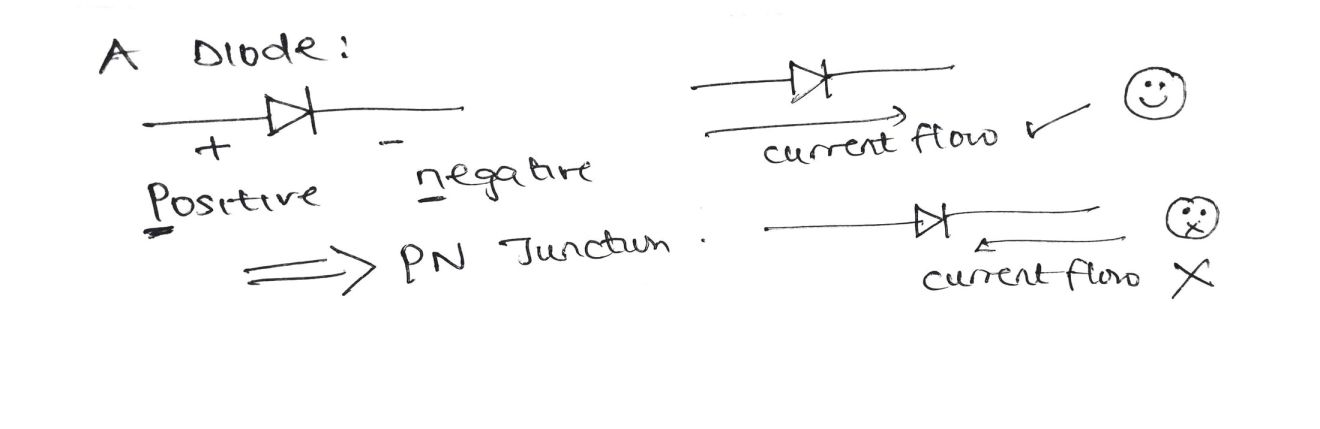 A Diode:
+ -
Positive negative
⇒ PN Junction.
current flow ✓
current flow X